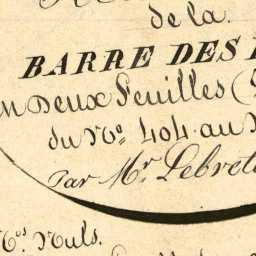 de la
BARRE DES
en Deux Feuilles (
du No. 404 au
Par Mr. Lebret
Nos. Nuls.